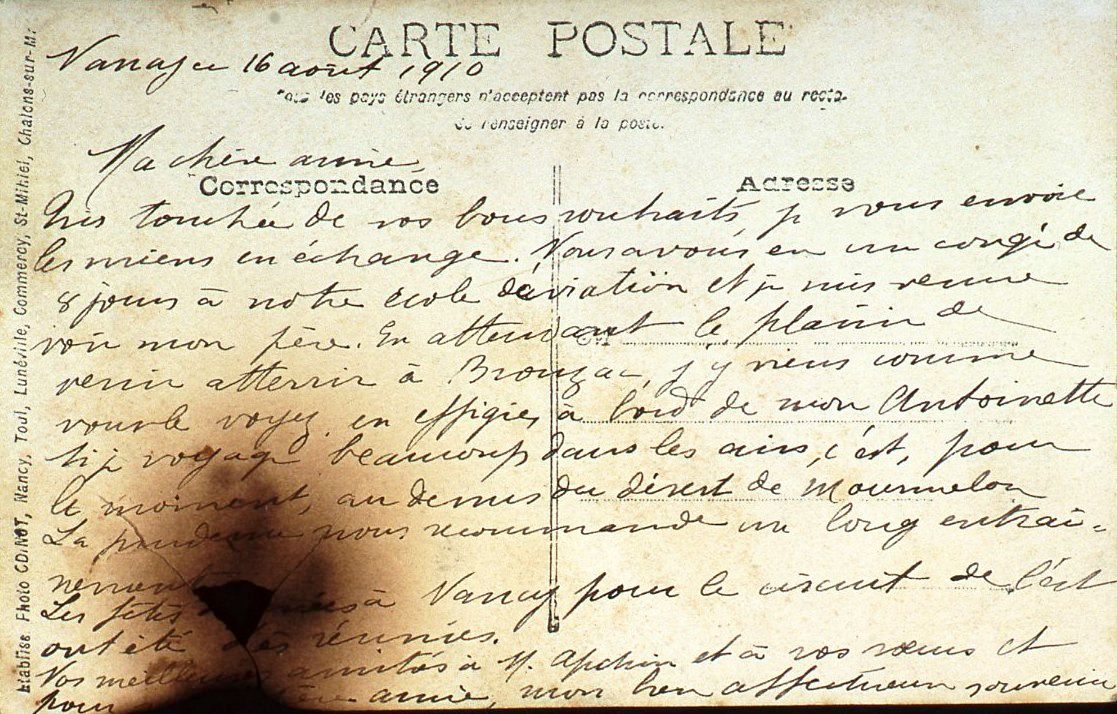 CARTE POSTALE
16 août 1910
Tous les pays étrangers n'acceptent pas la correspondance au recto.
Se renseigner à la poste.
Ma chère amie,
Correspondance
Adresse
Très touchée de vos bons souhaits je vous envoie
les miens en échange. Nous avons eu un congé de
8 jours à notre école d'aviation et je suis venue
voir mon père. En attendant le plaisir de
venir atterrir à j'y viens comme
vous le voyez, en effigie, à bord de mon Antoinette
si je voyage beaucoup dans les airs, c'est, pour
le moment, au dessus du désert de Mourmelon
La prudence nous recommande un long entraî-
nement
Les fêtes à Nancy pour le circuit de l'est
ont été très réussies.
Vos meilleures amitiés à M. et à vos et
pour chère amie, mon bien affectueux souvenir
Etabliss Photo CDNOT, Nancy, Toul, Lunéville, Commercy, St-Mihiel, Chalons-sur-M.